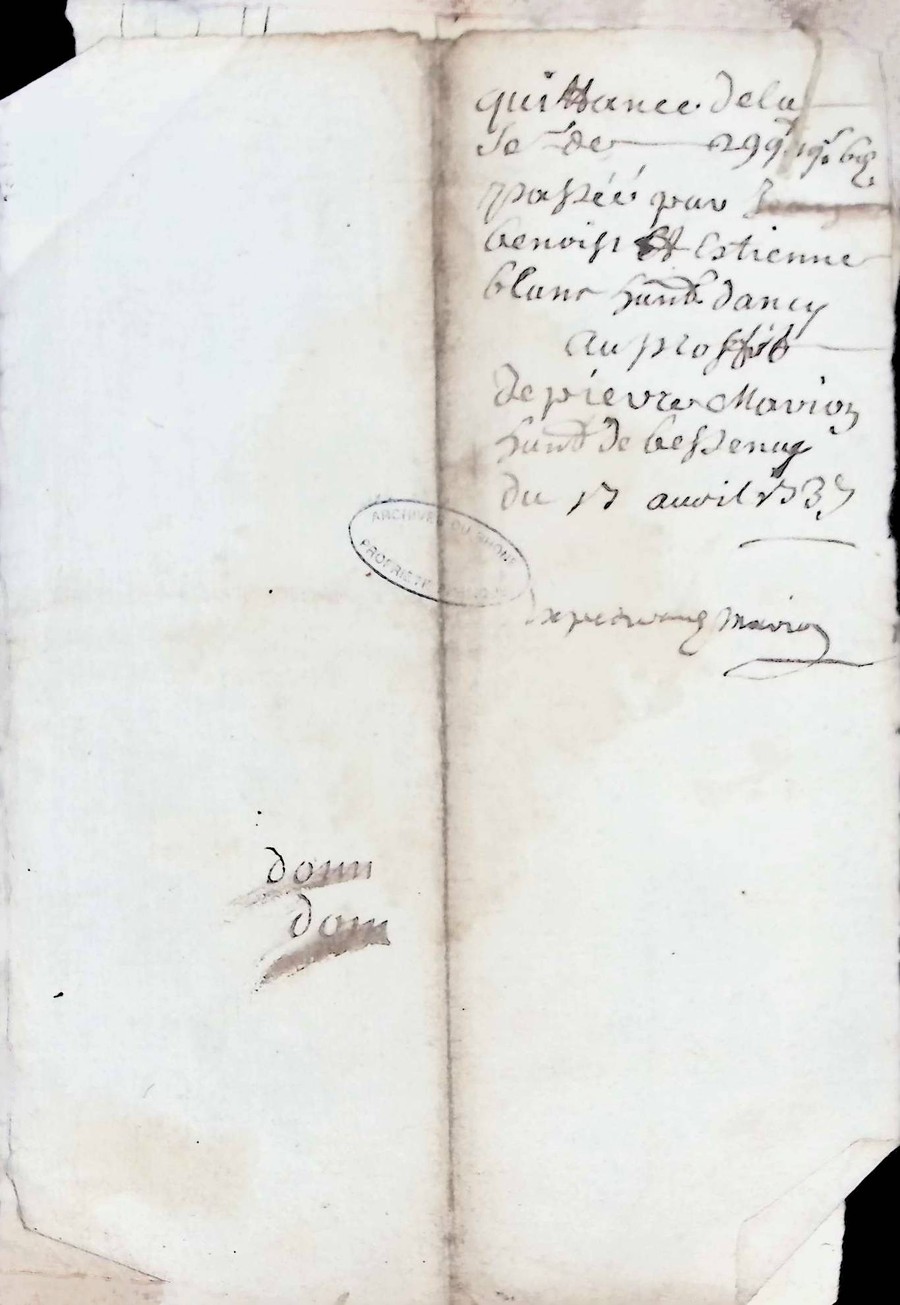 quittance dela
So^e de 299^# 19^s 6^d
passéé par
benoist Et Estienne
blanc hant dancy
au proffit
de pierre Marion
hant de bessenay
du 17 auril 1737
ARCHIVES DU RHONE
PROPRIETE PUBLIQUE
Marion
donn
dom